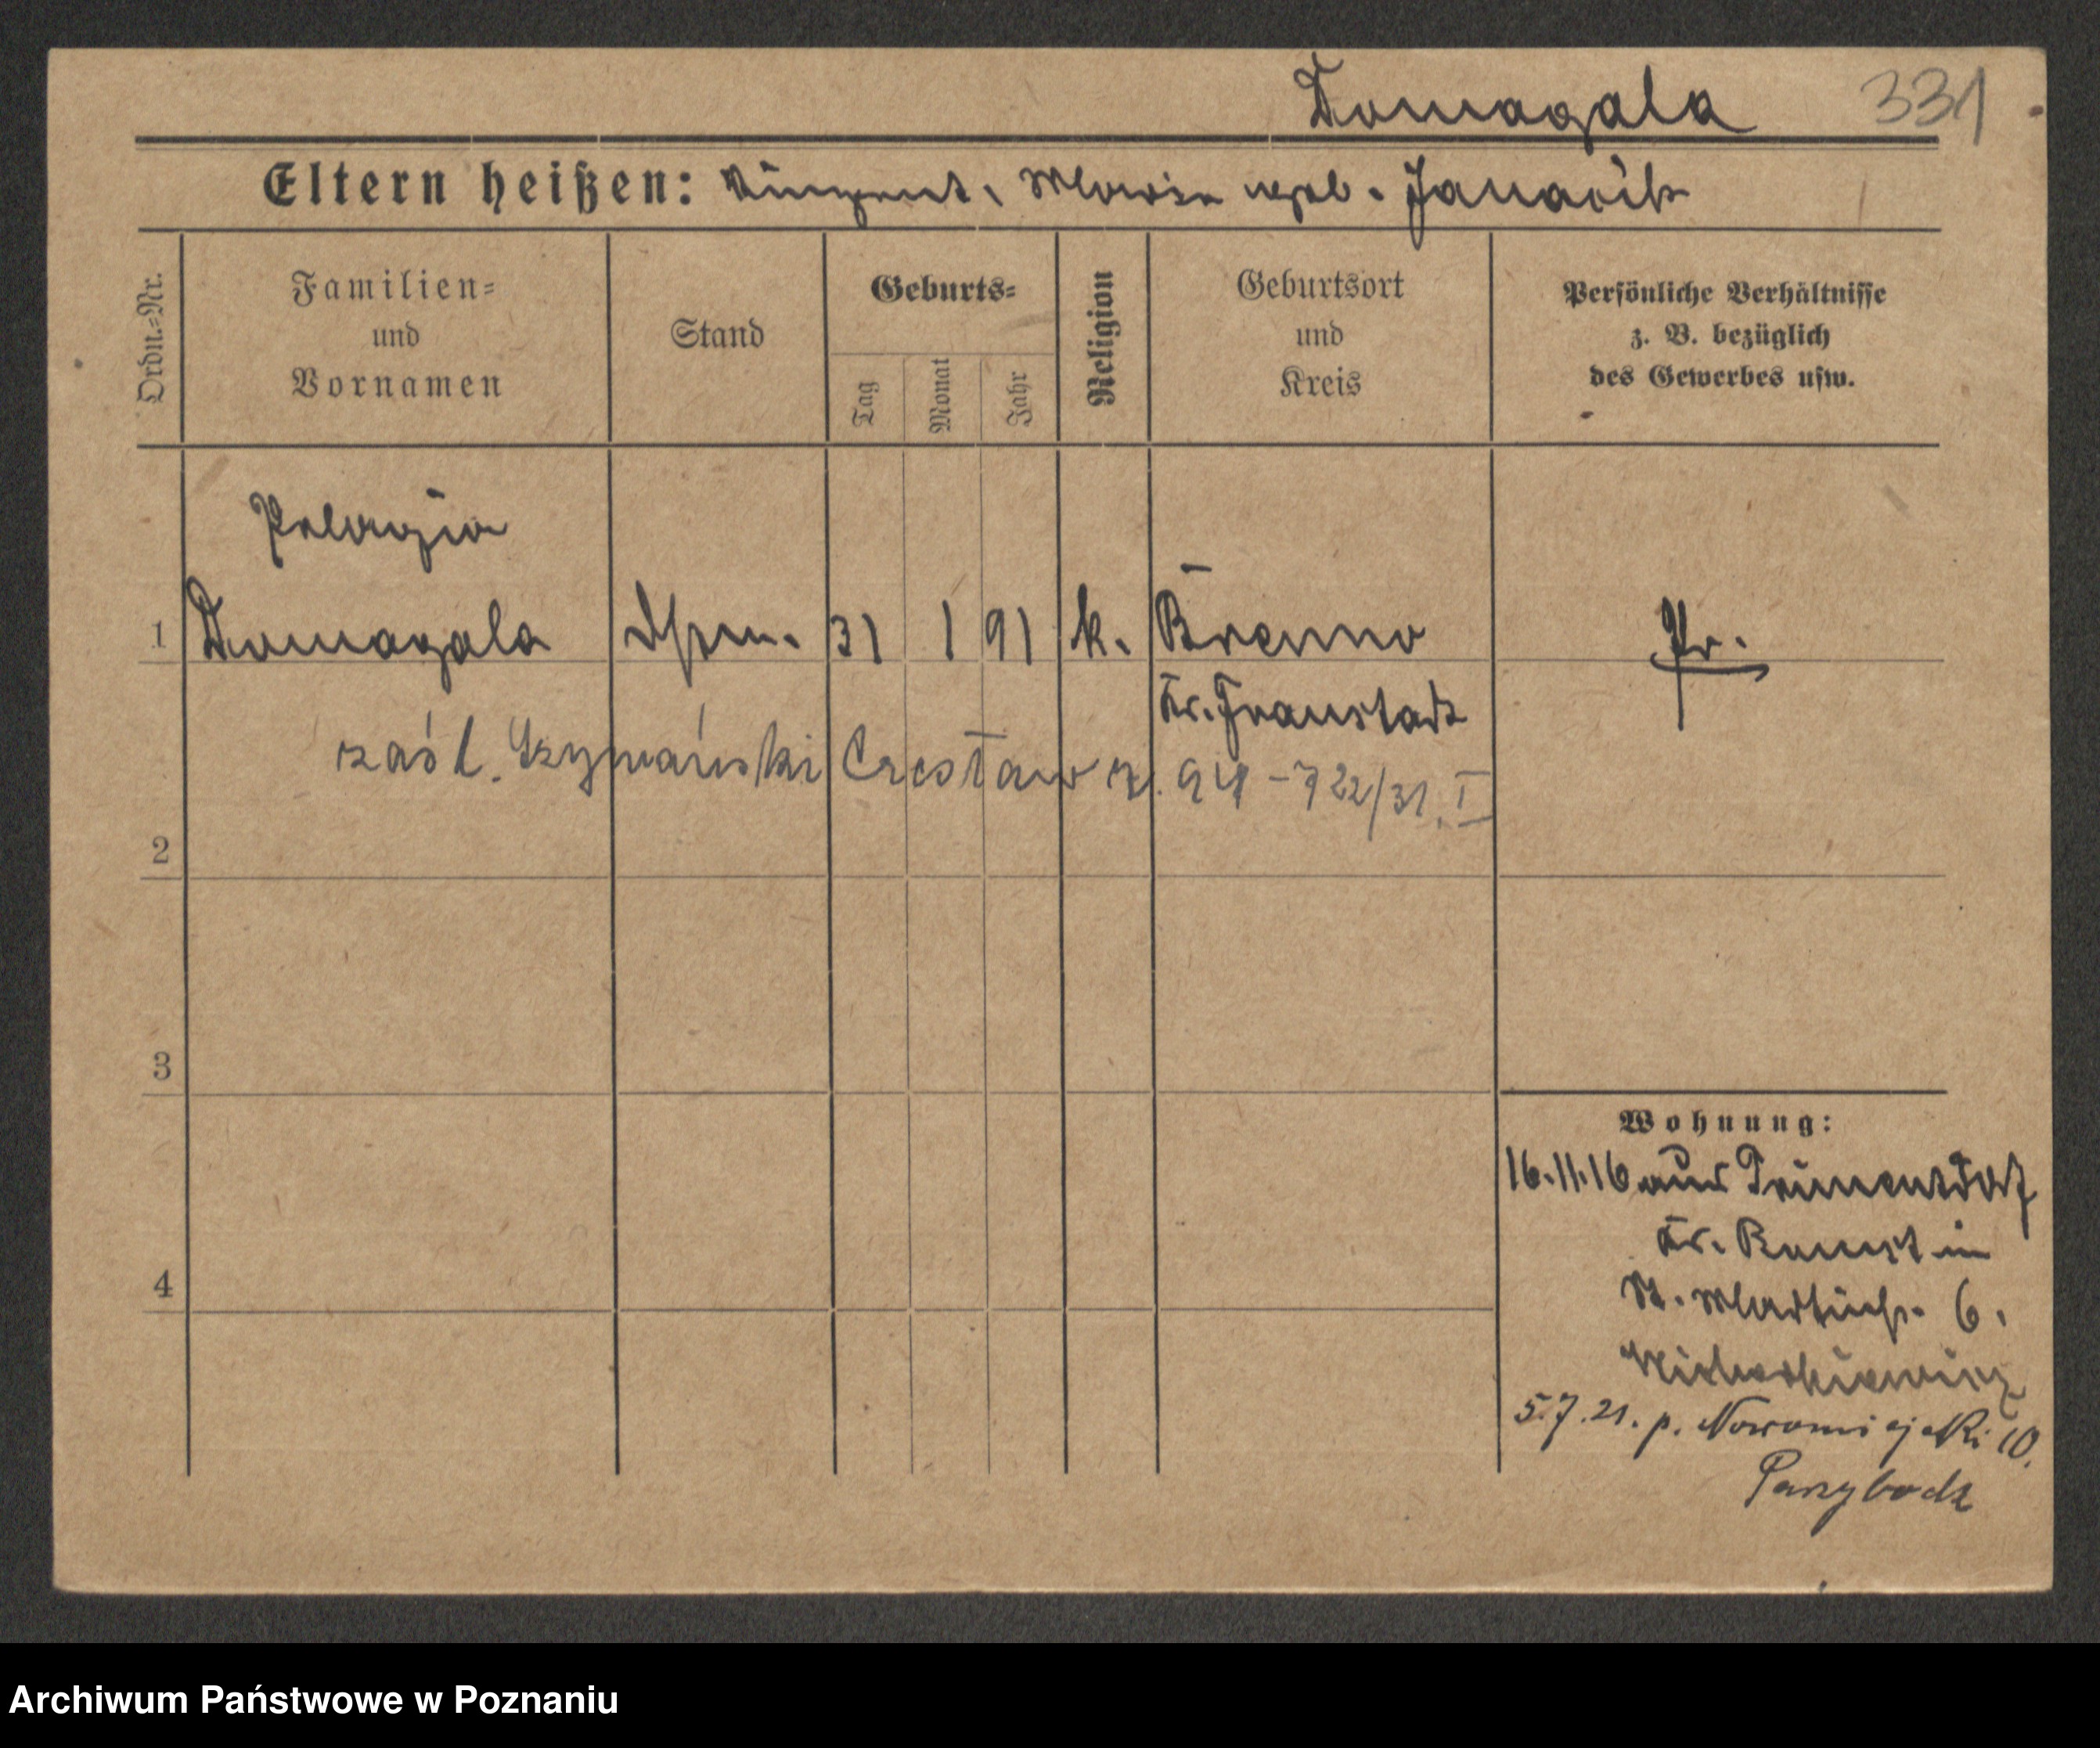 Domagala 331
Eltern heißen: Vinzent, Maria geb. Janacik
Ordn.=Nr.
Familien=
und
Vornamen
Stand
Geburts=
Tag
Monat
Jahr
Religion
Geburtsort
und
Kreis
Persönliche Verhältnisse
z. B. bezüglich
des Gewerbes usw.
Pelagia
1 Domagala 31 1 91 k. Brenno Pr.
Kr. Fraustadt
zaśl. Szymański Czesław 94 - 7 22/31. I
2
3
4
Wohnung:
16.11.16 aus Priment Dorf
Kr. Bomst in
St. Martinstr. 6.
5.7.21. p. Nowomiejski 10.
Archiwum Państwowe w Poznaniu